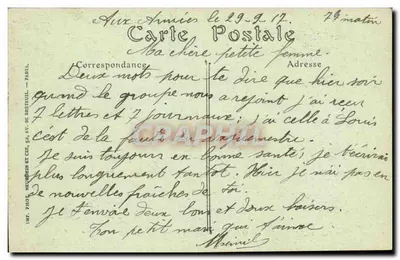 Aux Armées le 29-9-17. 7h matin
Carte Postale
Ma chère petite femme.
Correspondance Adresse
Deux mots pour te dire que hier soir
quand le groupe nous a rejoint j'ai reçu
7 lettres et 7 journaux; j'ai celle à Louis
c'est de la
Je suis toujours en bonne santé; je t'écrirai
plus longuement tantôt. Hier je n'ai pas eu
de nouvelles fraîches de toi.
Je t'envoie deux bons et doux baisers.
Ton petit mari qui t'aime
IMP. PHOT. NEURDEIN ET CIE, 52, AV. DE BRETEUIL. - PARIS.